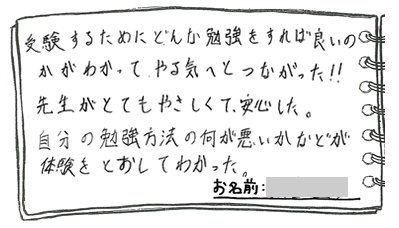 受験するためにどんな勉強をすれば良いの
かがわかって、やる気へとつながった!!
先生がとてもやさしくて、安心した。
自分の勉強方法の何が悪いかなどが
体験をとおしてわかった。
お名前: